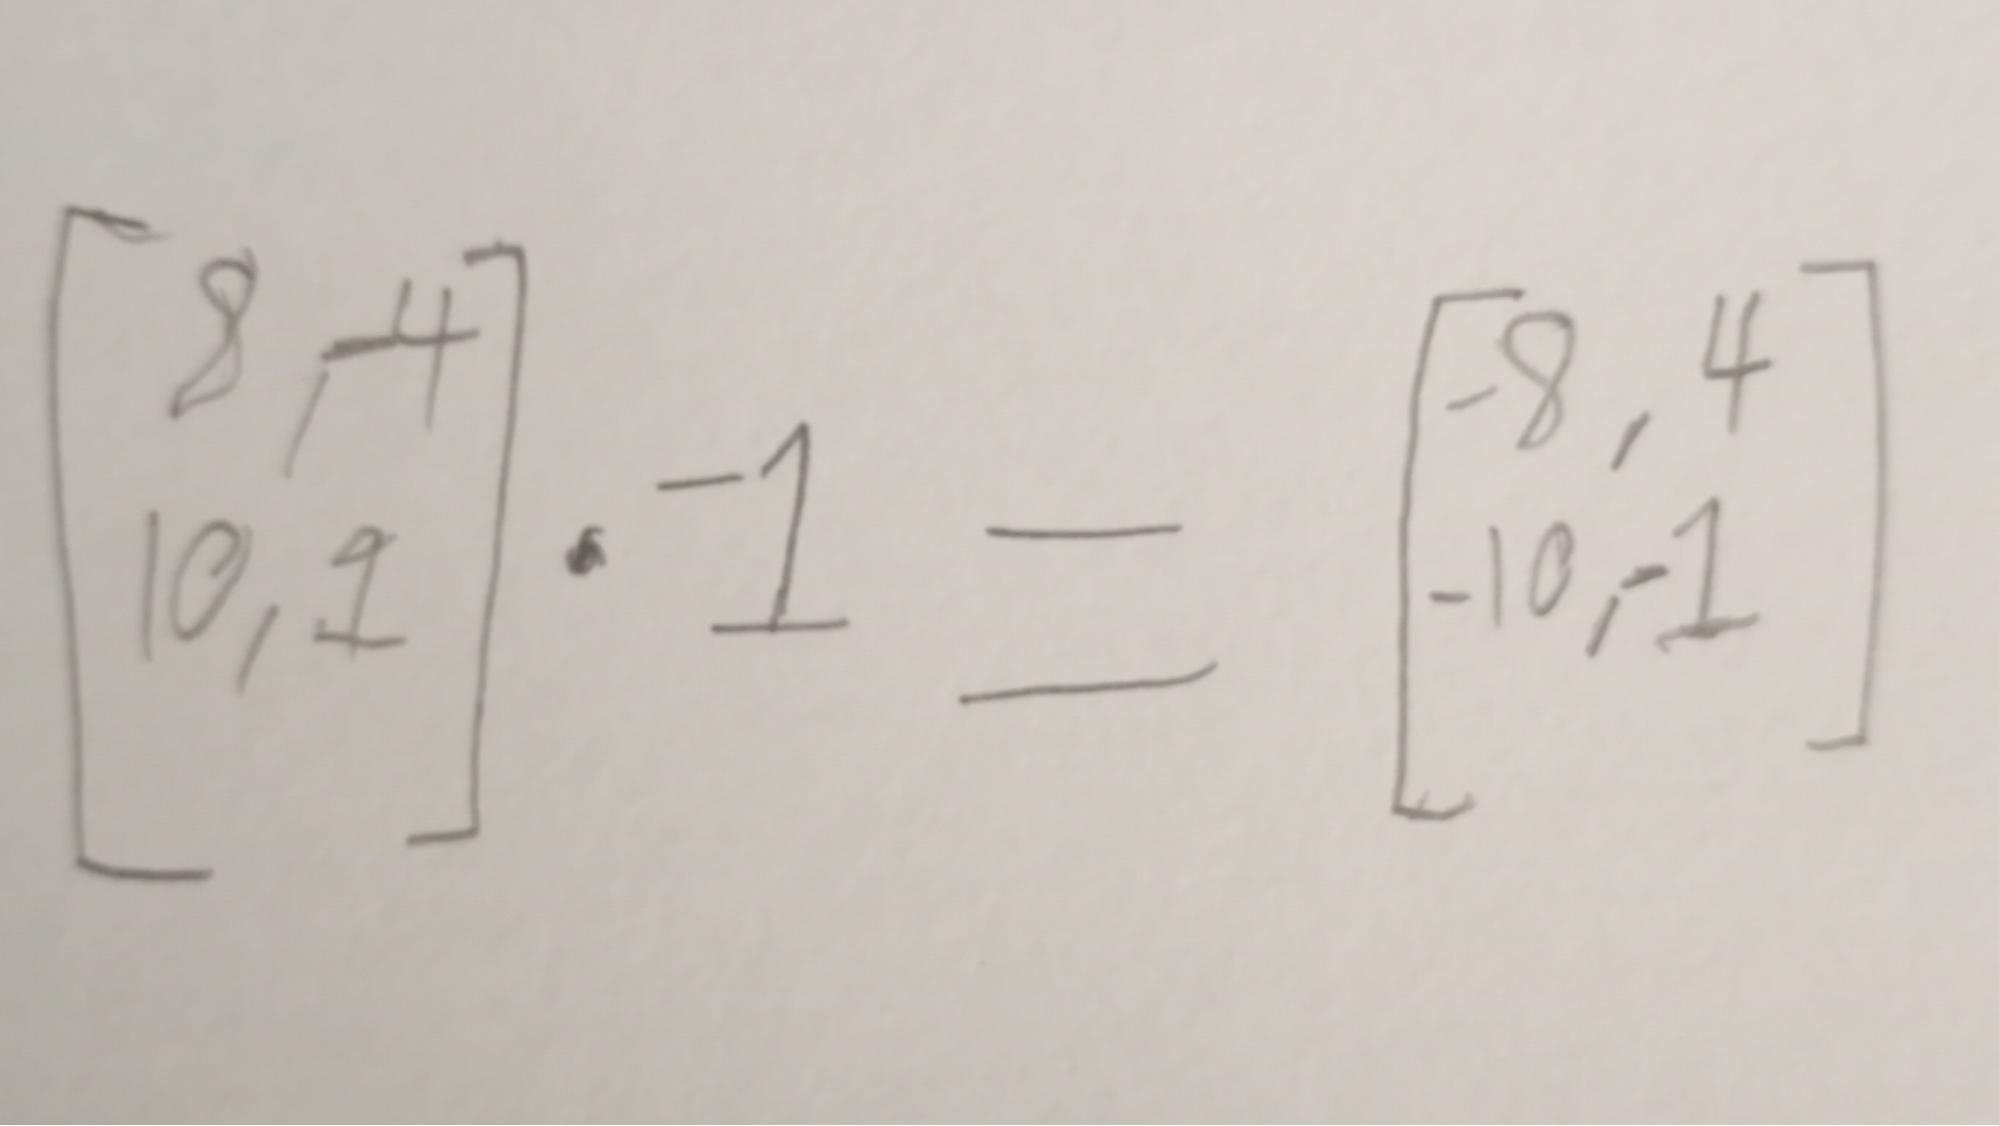 [8, -4
10, 1] · -1 = [-8, 4
-10, -1]